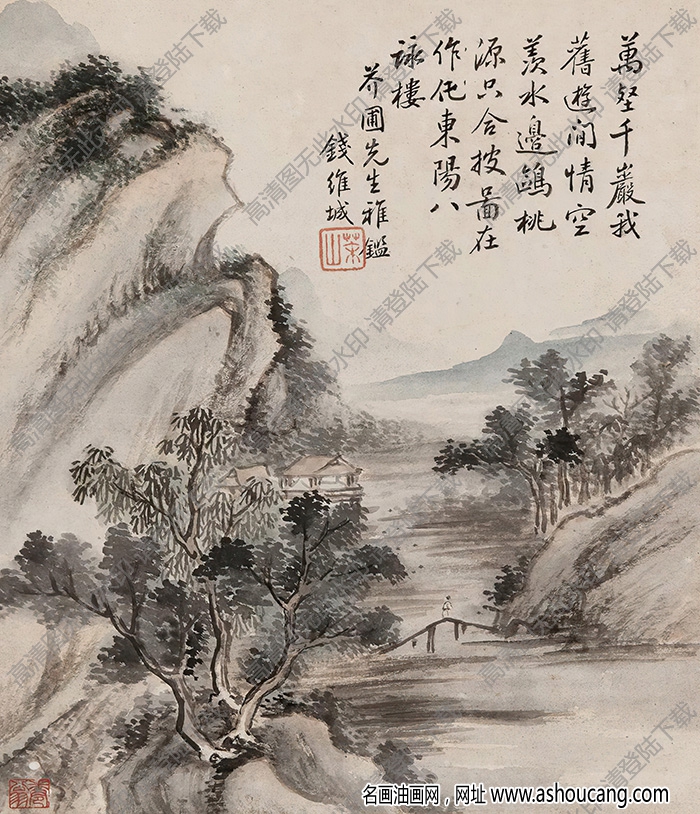 萬壑千巖我
舊遊閒情空
羨水邊鷗桃
源只合披圖在
作佗東陽八
詠樓
芥圃先生雅鑑
錢維城
茶山
高清图无此水印·请登陆下载
名画油画网，网址 www.ashoucang.com